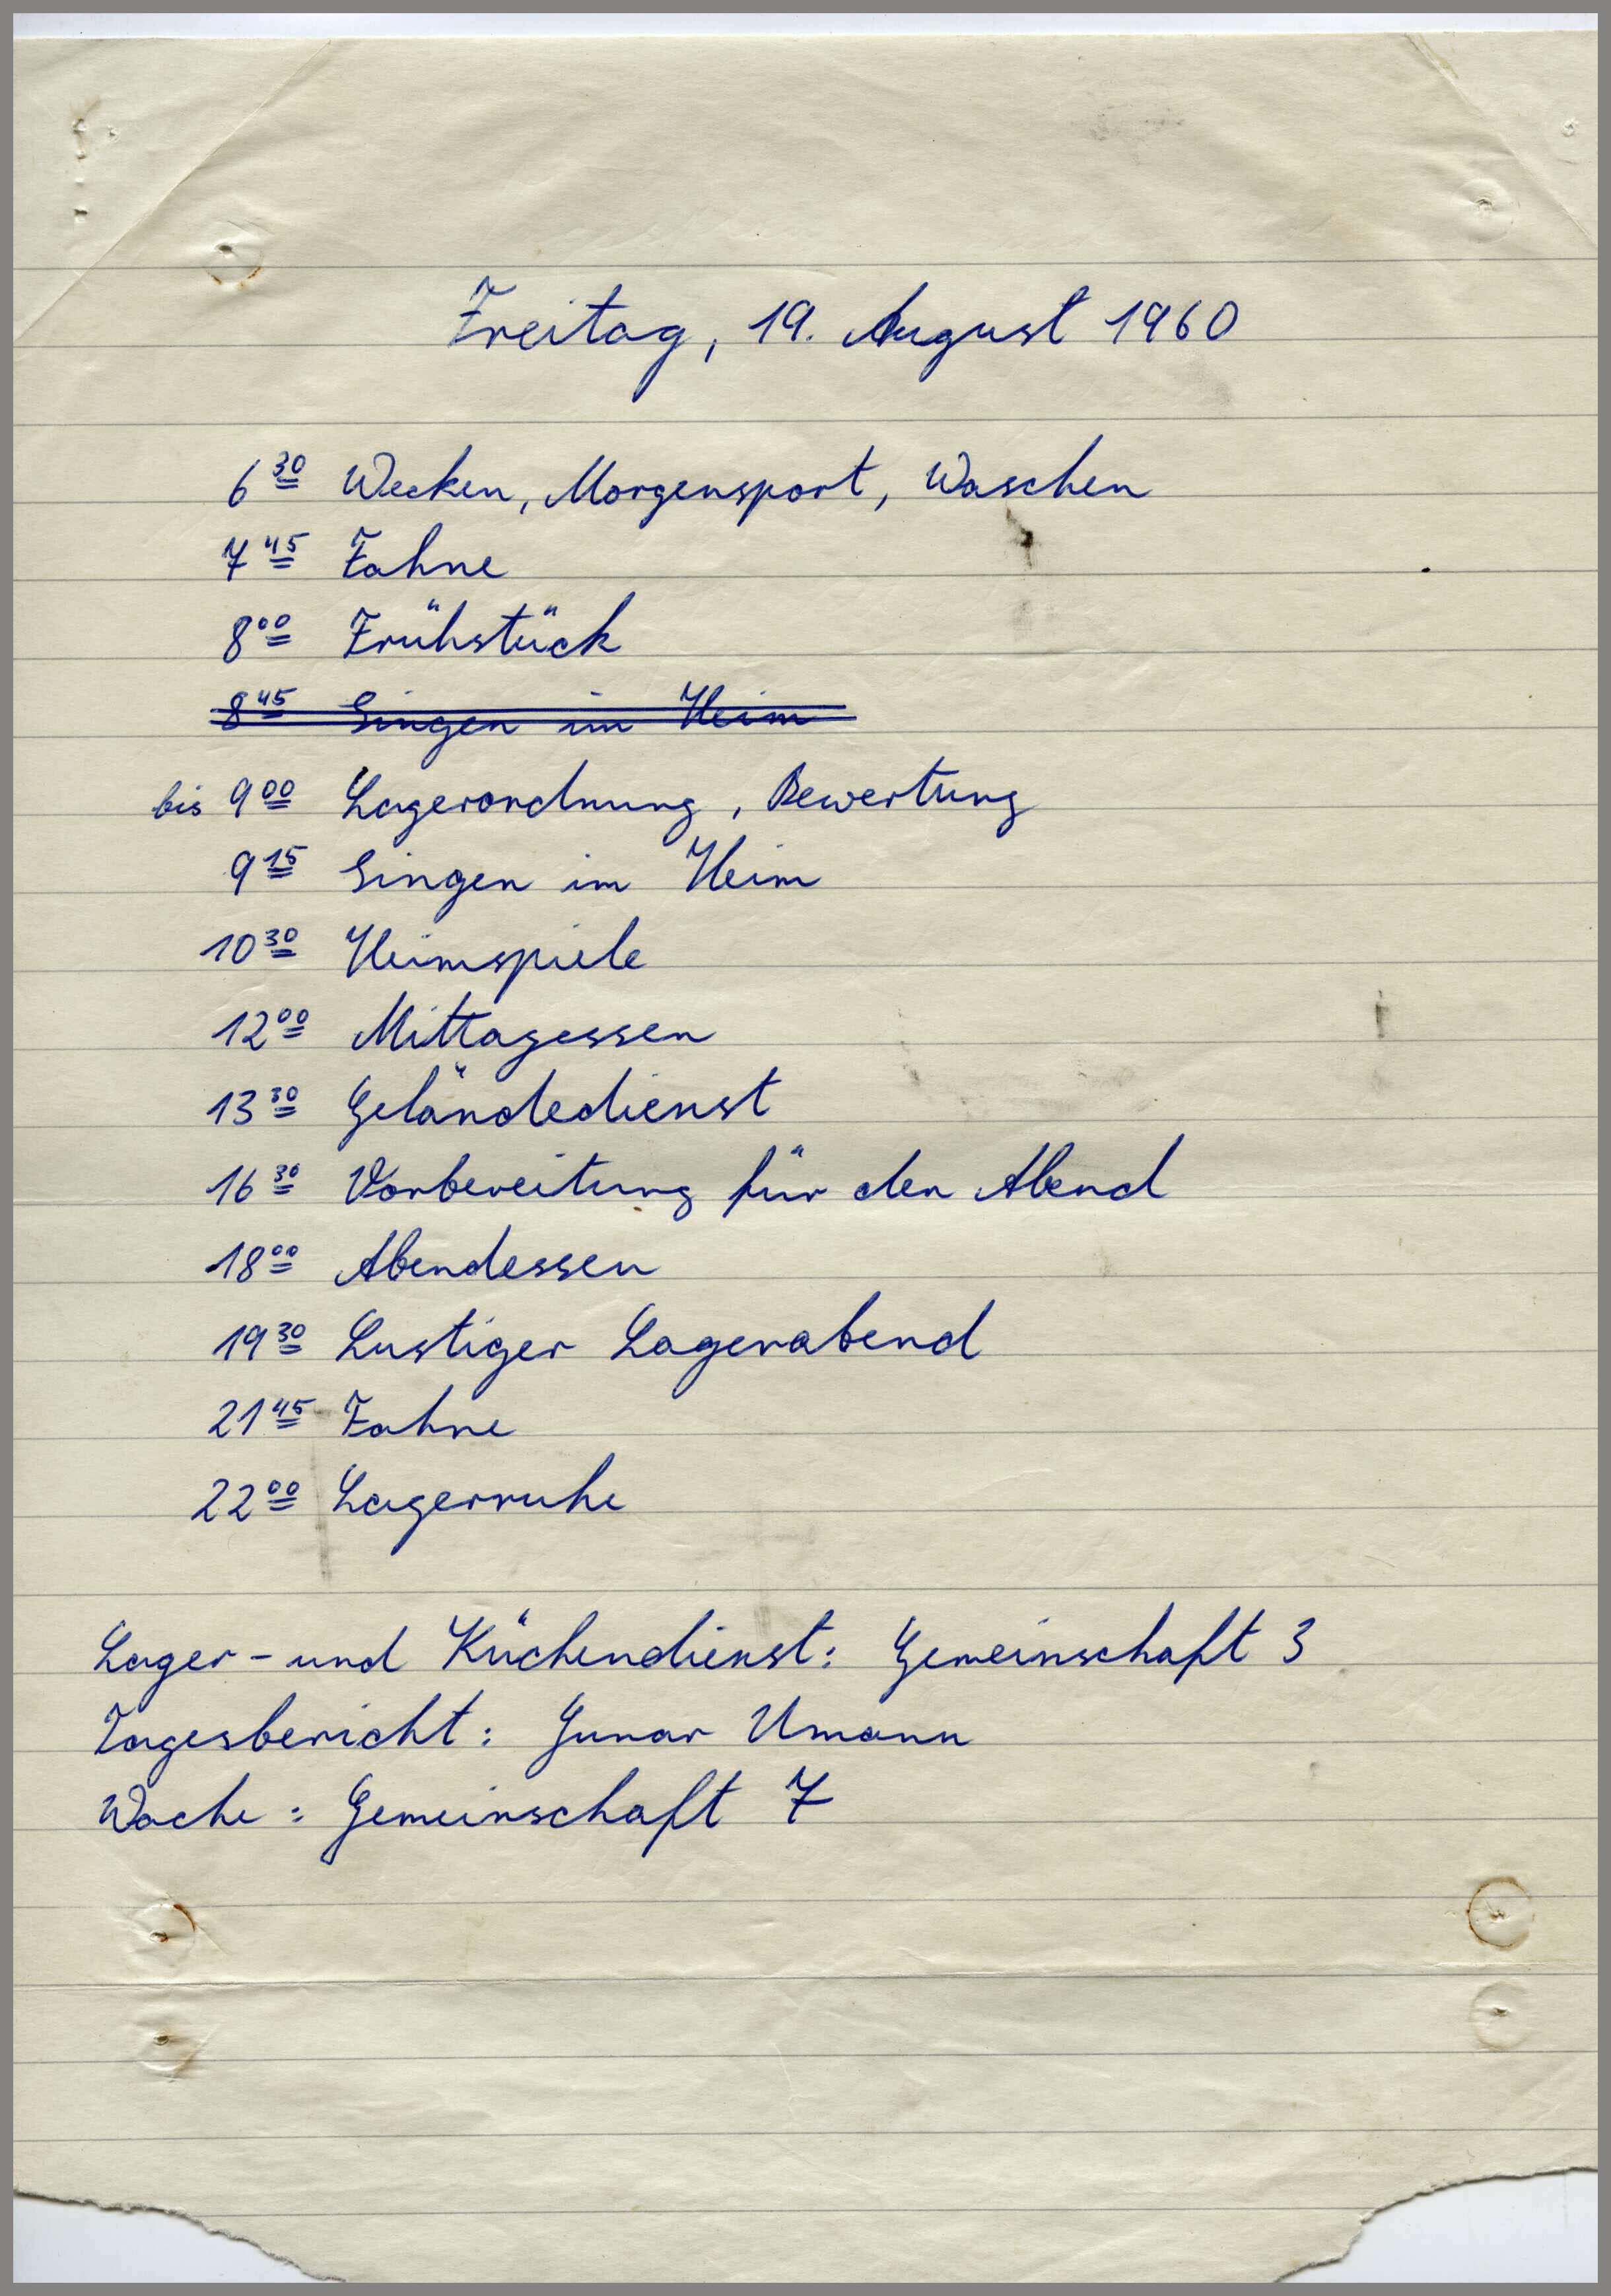 Freitag, 19. August 1960
6 30 Wecken, Morgensport, Waschen
7 45 Fahne
8 00 Frühstück
8 45 Singen im Heim
bis 9 00 Lagerordnung, Bewertung
9 15 Singen im Heim
10 30 Heimspiele
12 00 Mittagessen
13 30 Geländedienst
16 30 Vorbereitung für den Abend
18 00 Abendessen
19 30 Lustiger Lagerabend
21 45 Fahne
22 00 Lagerruhe
Lager- und Küchendienst: Gemeinschaft 3
Tagesbericht: Gunar Umann
Wache: Gemeinschaft 7